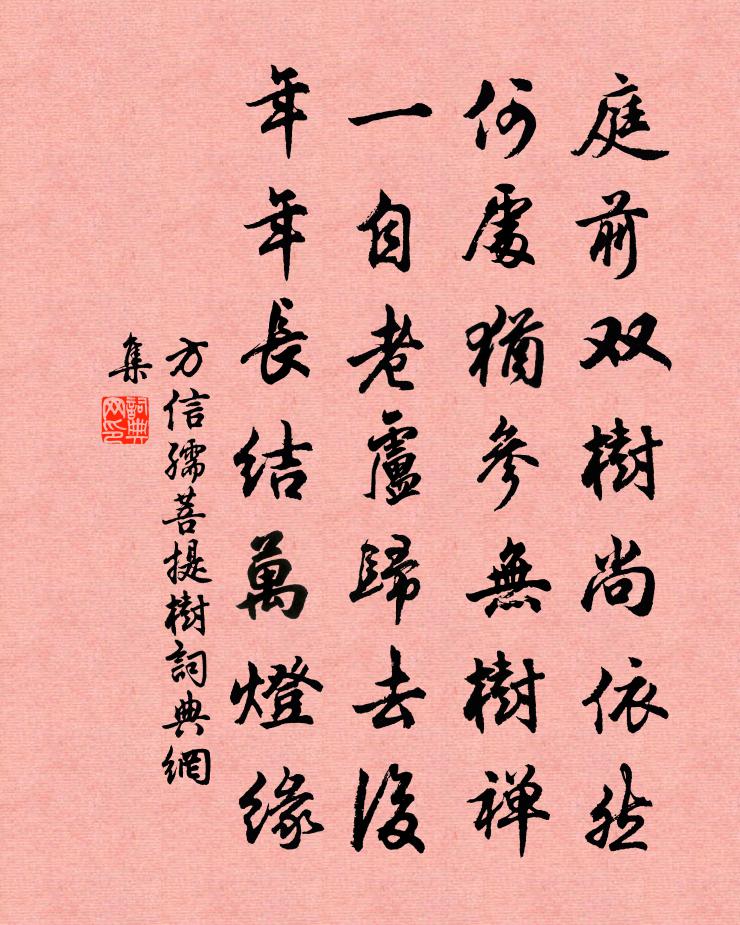 庭前双樹尚依然
何處猶參無樹禅
一自老盧歸去後
年年長結萬燈緣
方信孺菩提樹詞典網
集
詞典網印